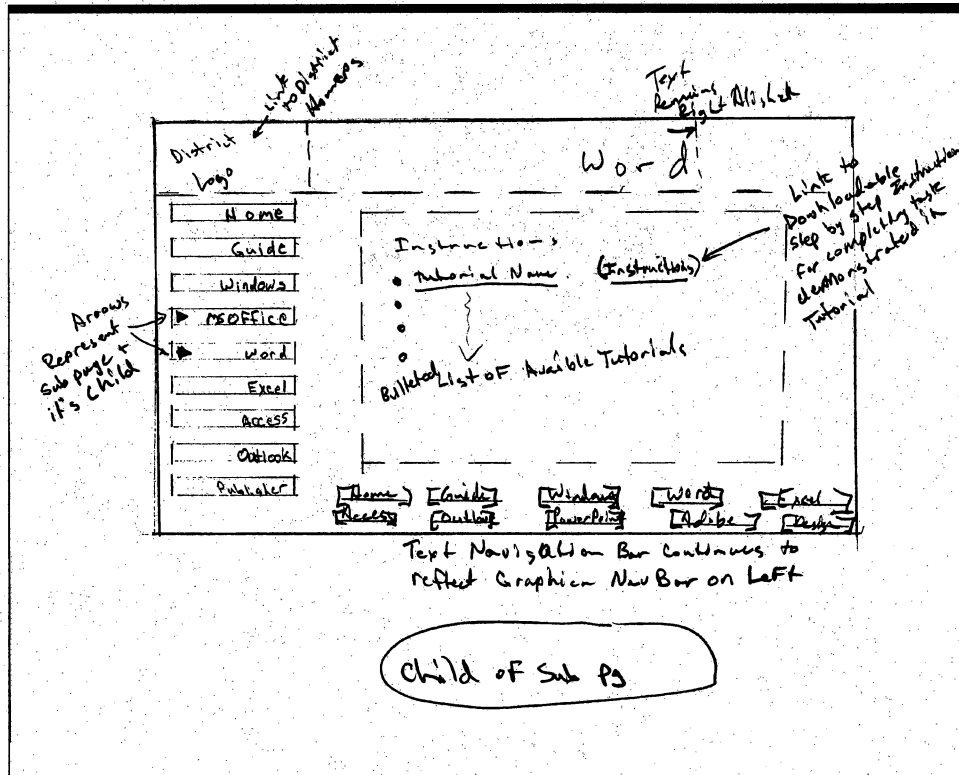 Link
to District
Homepg
Text
Remains
Right Aligned
District
Logo
Word
Link to
Downloadable
Step by step Instruction
For completing task
demonstrated in
Tutorial
Home
Guide
Windows
MSOFFice
Word
Excel
Access
Outlook
Publisher
Arrows
Represent
Sub page +
it's child
Instructions
Tutorial Name (Instructions)
Bulleted List OF Availble Tutorials
[Home] [Guide] [Windows] [Word] [Excel]
[Access] [Outlook] [PowerPoint] [Adobe] [Design]
Text Navigation Bar Continues to
reflect Graphical Nav Bar on LeFt
Child oF Sub Pg